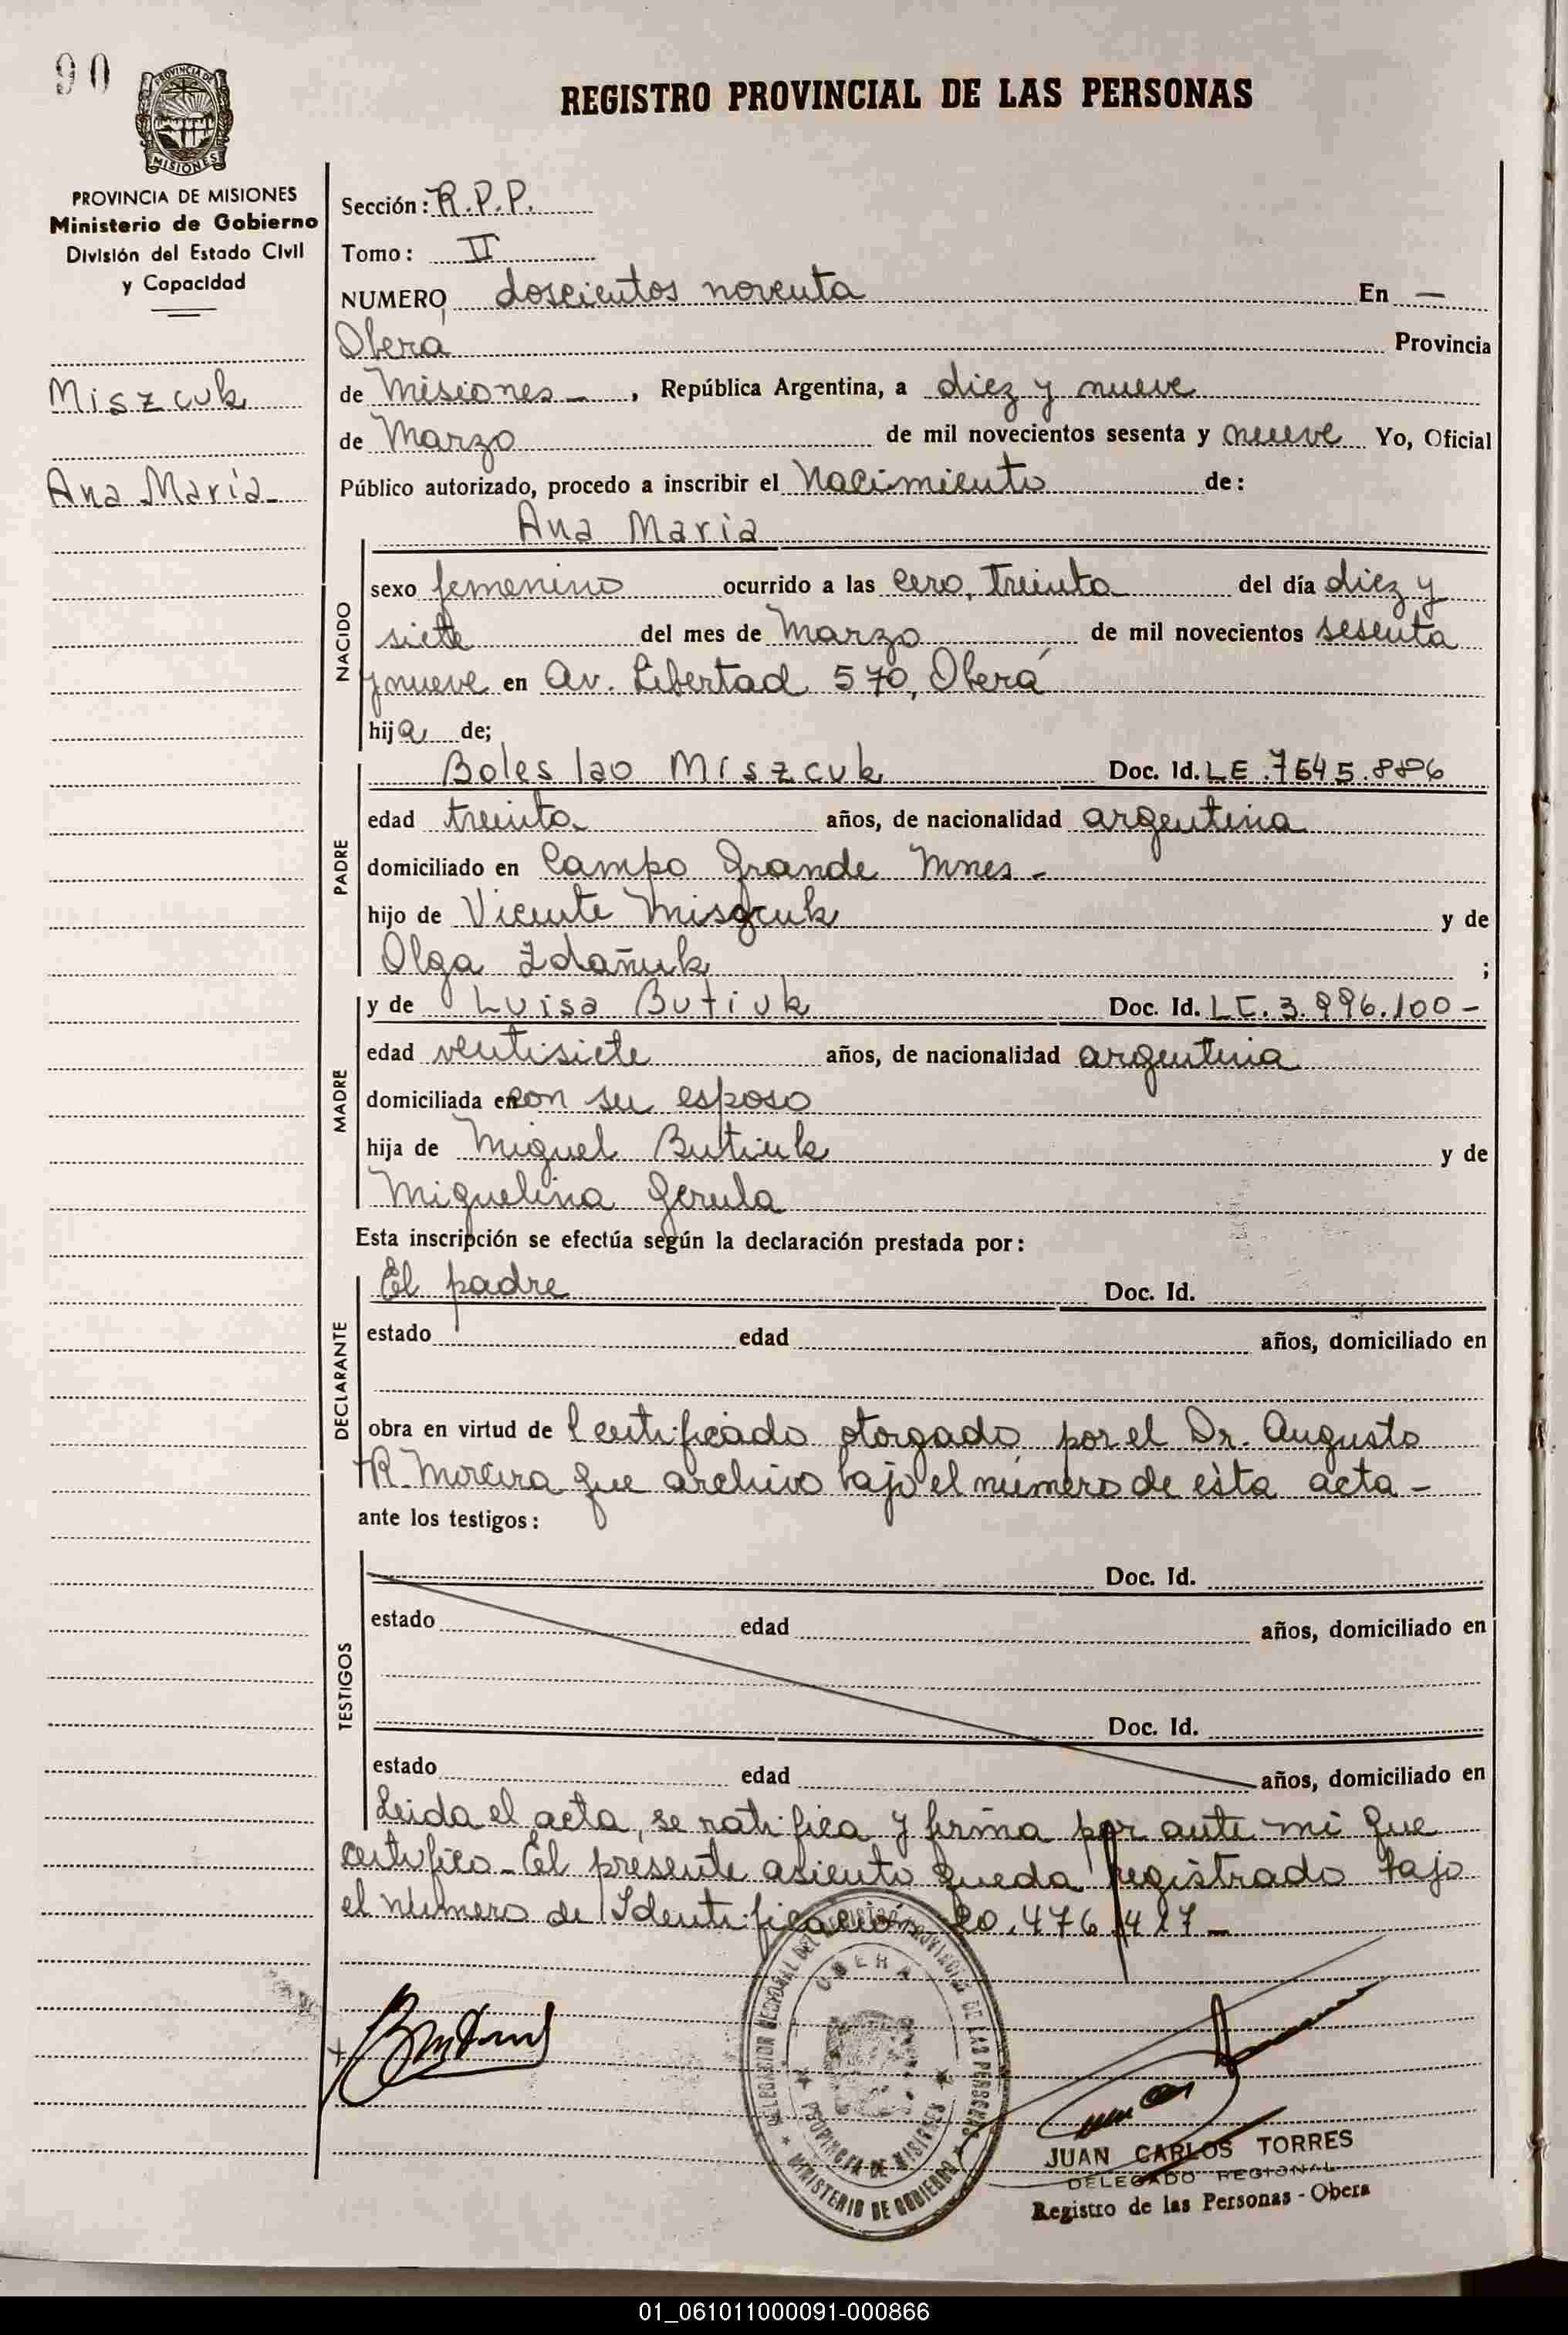 90
REGISTRO PROVINCIAL DE LAS PERSONAS
PROVINCIA DE MISIONES
PROVINCIA DE MISIONES
Ministerio de Gobierno
División del Estado Civil
y Capacidad
Miszcuk
Ana María
Sección: R.P.P.
Tomo: II
NUMERO doscientos noventa En —
Oberá Provincia
de Misiones - , República Argentina, a diez y nueve
de Marzo de mil novecientos sesenta y nueve Yo, Oficial
Público autorizado, procedo a inscribir el Nacimiento de:
Ana Maria
NACIDO
sexo femenino ocurrido a las cero, treinta del día diez y
siete del mes de Marzo de mil novecientos sesenta
y nueve en Av. Libertad 570, Oberá
hija de;
PADRE
Boleslao Miszcuk Doc. Id. L E. 7645.886
edad treinta años, de nacionalidad argentina
domiciliado en Campo Grande Mnes -
hijo de Vicente Miszcuk y de
Olga Zdañuk ;
MADRE
y de Luisa Butiuk Doc. Id. L C. 3.996.100 -
edad ventisiete años, de nacionalidad argentina
domiciliada en con su esposo
hija de Miguel Butiuk y de
Miguelina Gerula
Esta inscripción se efectúa según la declaración prestada por:
DECLARANTE
El padre Doc. Id.
estado edad años, domiciliado en
obra en virtud de Certificado otorgado por el Dr. Augusto
R. Moreira que archivo bajo el número de ésta acta -
ante los testigos:
TESTIGOS
Doc. Id.
estado edad años, domiciliado en
Doc. Id.
estado edad años, domiciliado en
Leida el acta, se ratifica y firma por ante mi que
certifico - El presente asiento queda registrado bajo
el número de Identificación 20.476.417 -
DELEGACION REGIONAL DEL REGISTRO PROVINCIAL DE LAS PERSONAS
OBERA
PROVINCIA DE MISIONES
MINISTERIO DE GOBIERNO
JUAN CARLOS TORRES
DELEGADO REGIONAL
Registro de las Personas - Obera
01_061011000091-000866